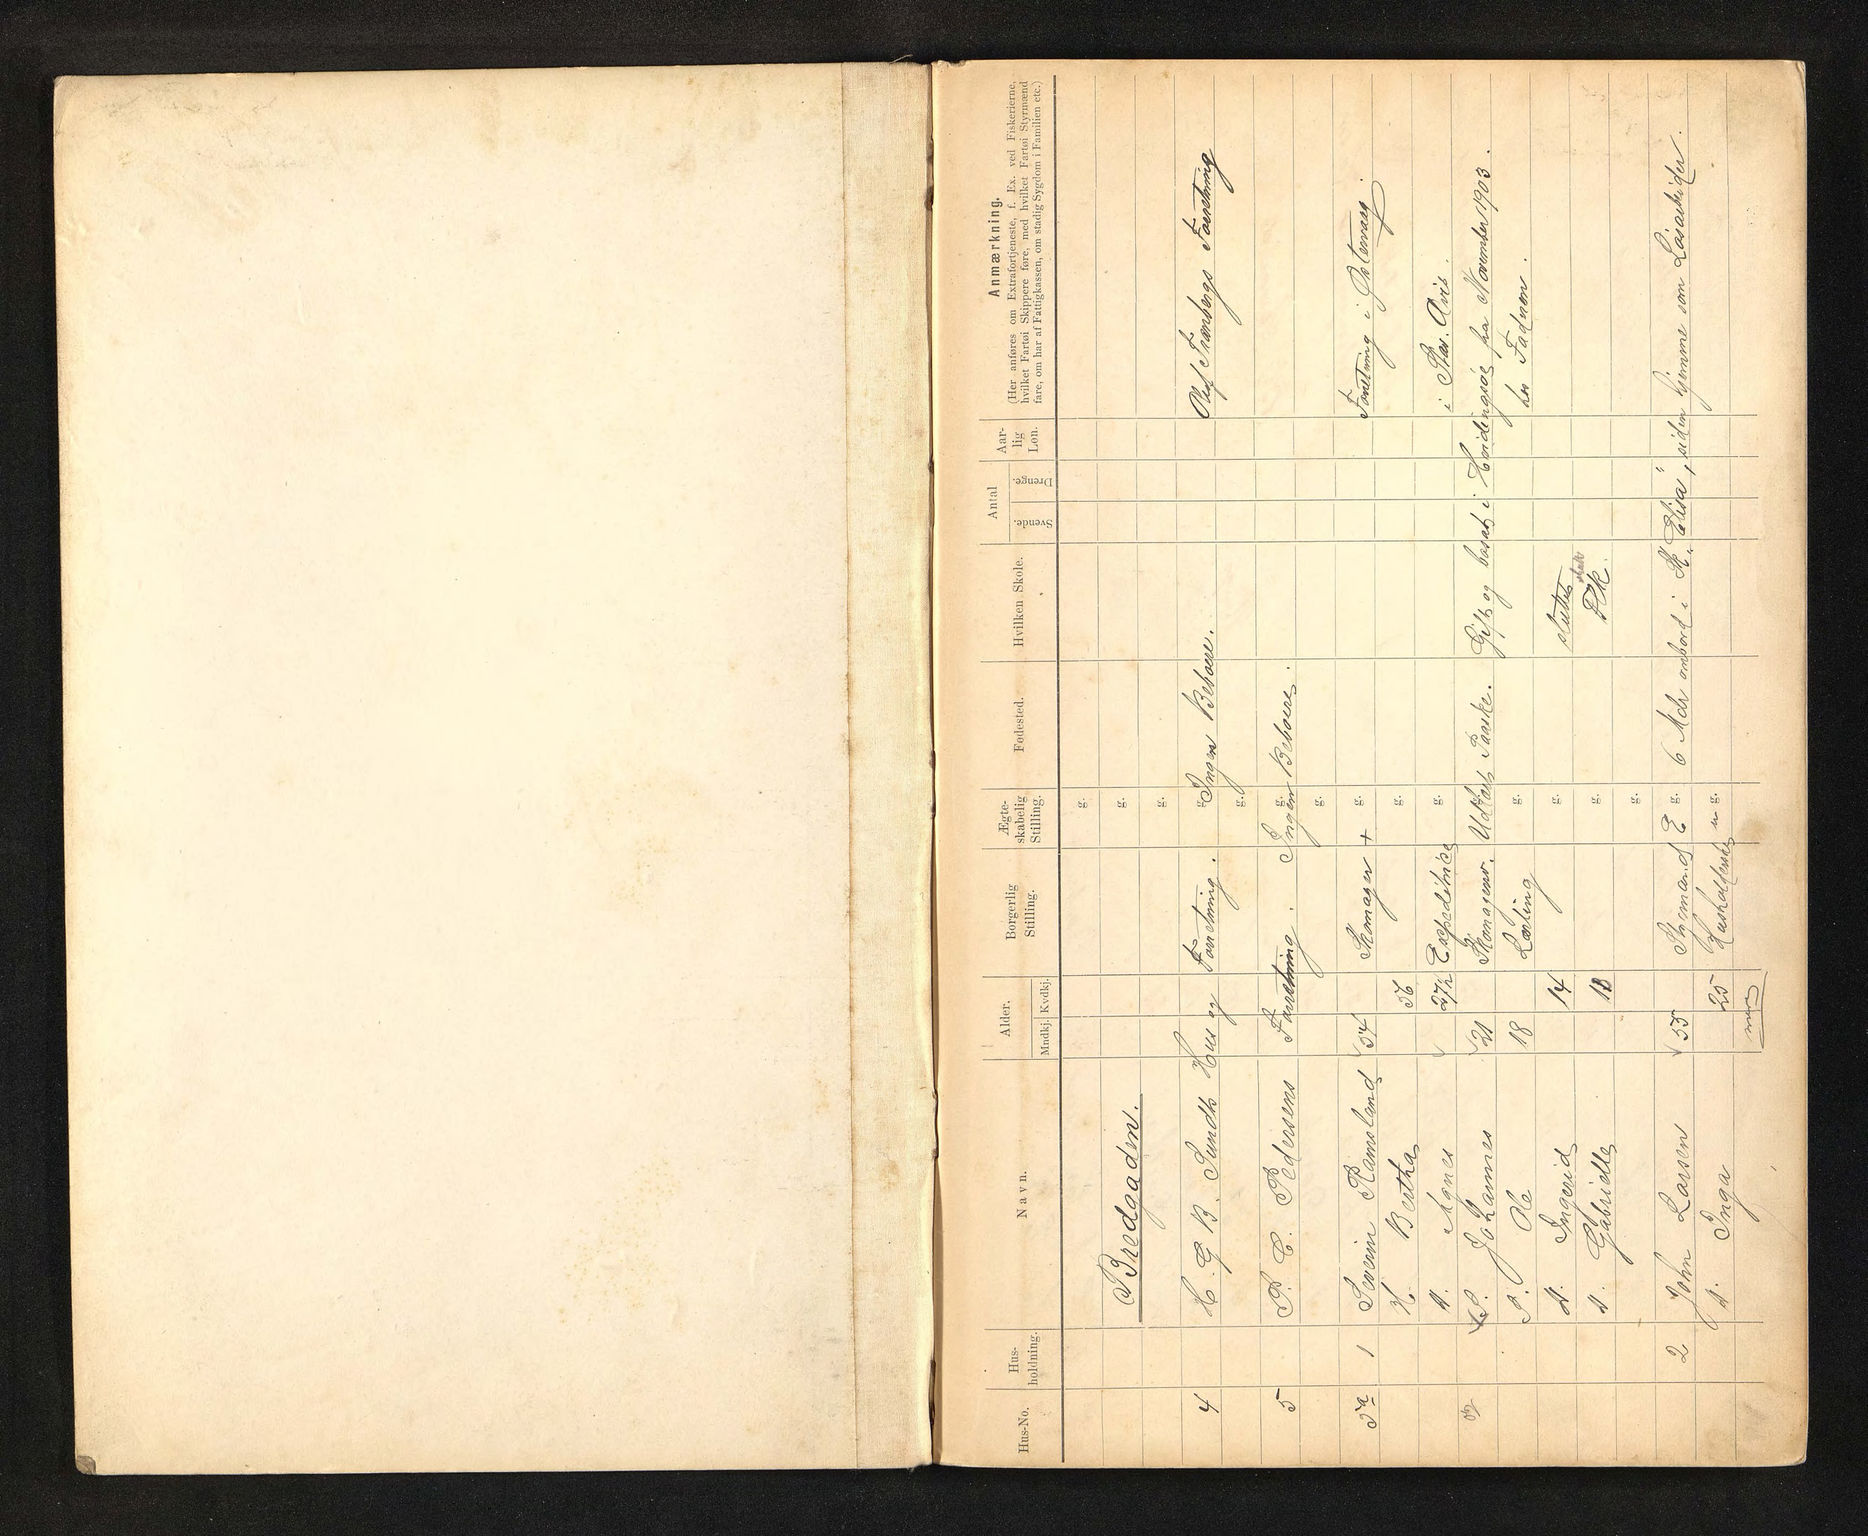 Hus-No. Hus-holdning. Navn. Alder. Mndkj. Kvdkj. Borgerlig Stilling. Ægte-skabelig Stilling. Fødested. Hvilken Skole. Antal Svende. Drenge. Aar-lig Løn. Anmærkning.
(Her anføres om Extrafortjeneste, f. Ex. ved Fiskerierne,
hvilket Fartøi Skippere føre, med hvilket Fartøi Styrmænd
fare, om har af Fattigkassen, om stadig Sygdom i Familien etc.)
g.
Bredgaden. g.
g.
4 H. G. B. Sundts Hus og Forretning. g. Ingen Beboere. Forretning
g.
5 P. C. Pedersens Forretning. Ingen g. Beboere.
g.
5a 1 Severin Ramsland 54 Skomager + g. Forretning i Østervaag
H. Bertha 56 g.
d. Agnes 27½ Expeditrice g. i Stav. Avis.
S. Johannes 21 Skomagersv. Udlært Paaske. Gift og bosat i Hvidingsøe fra November 1903.
S. Ole 18 Lærling g. hos Faderen.
d. Ingerid 14 g. sluttet
d. Gabrielle 10 g. Flk.
g.
2 John Larsen 55 Styrmand E g. 6 Mdr ombord i Sk. "Elisa", siden hjemme som Løsarbeider.
d. Inga 25 Husholderske u g.